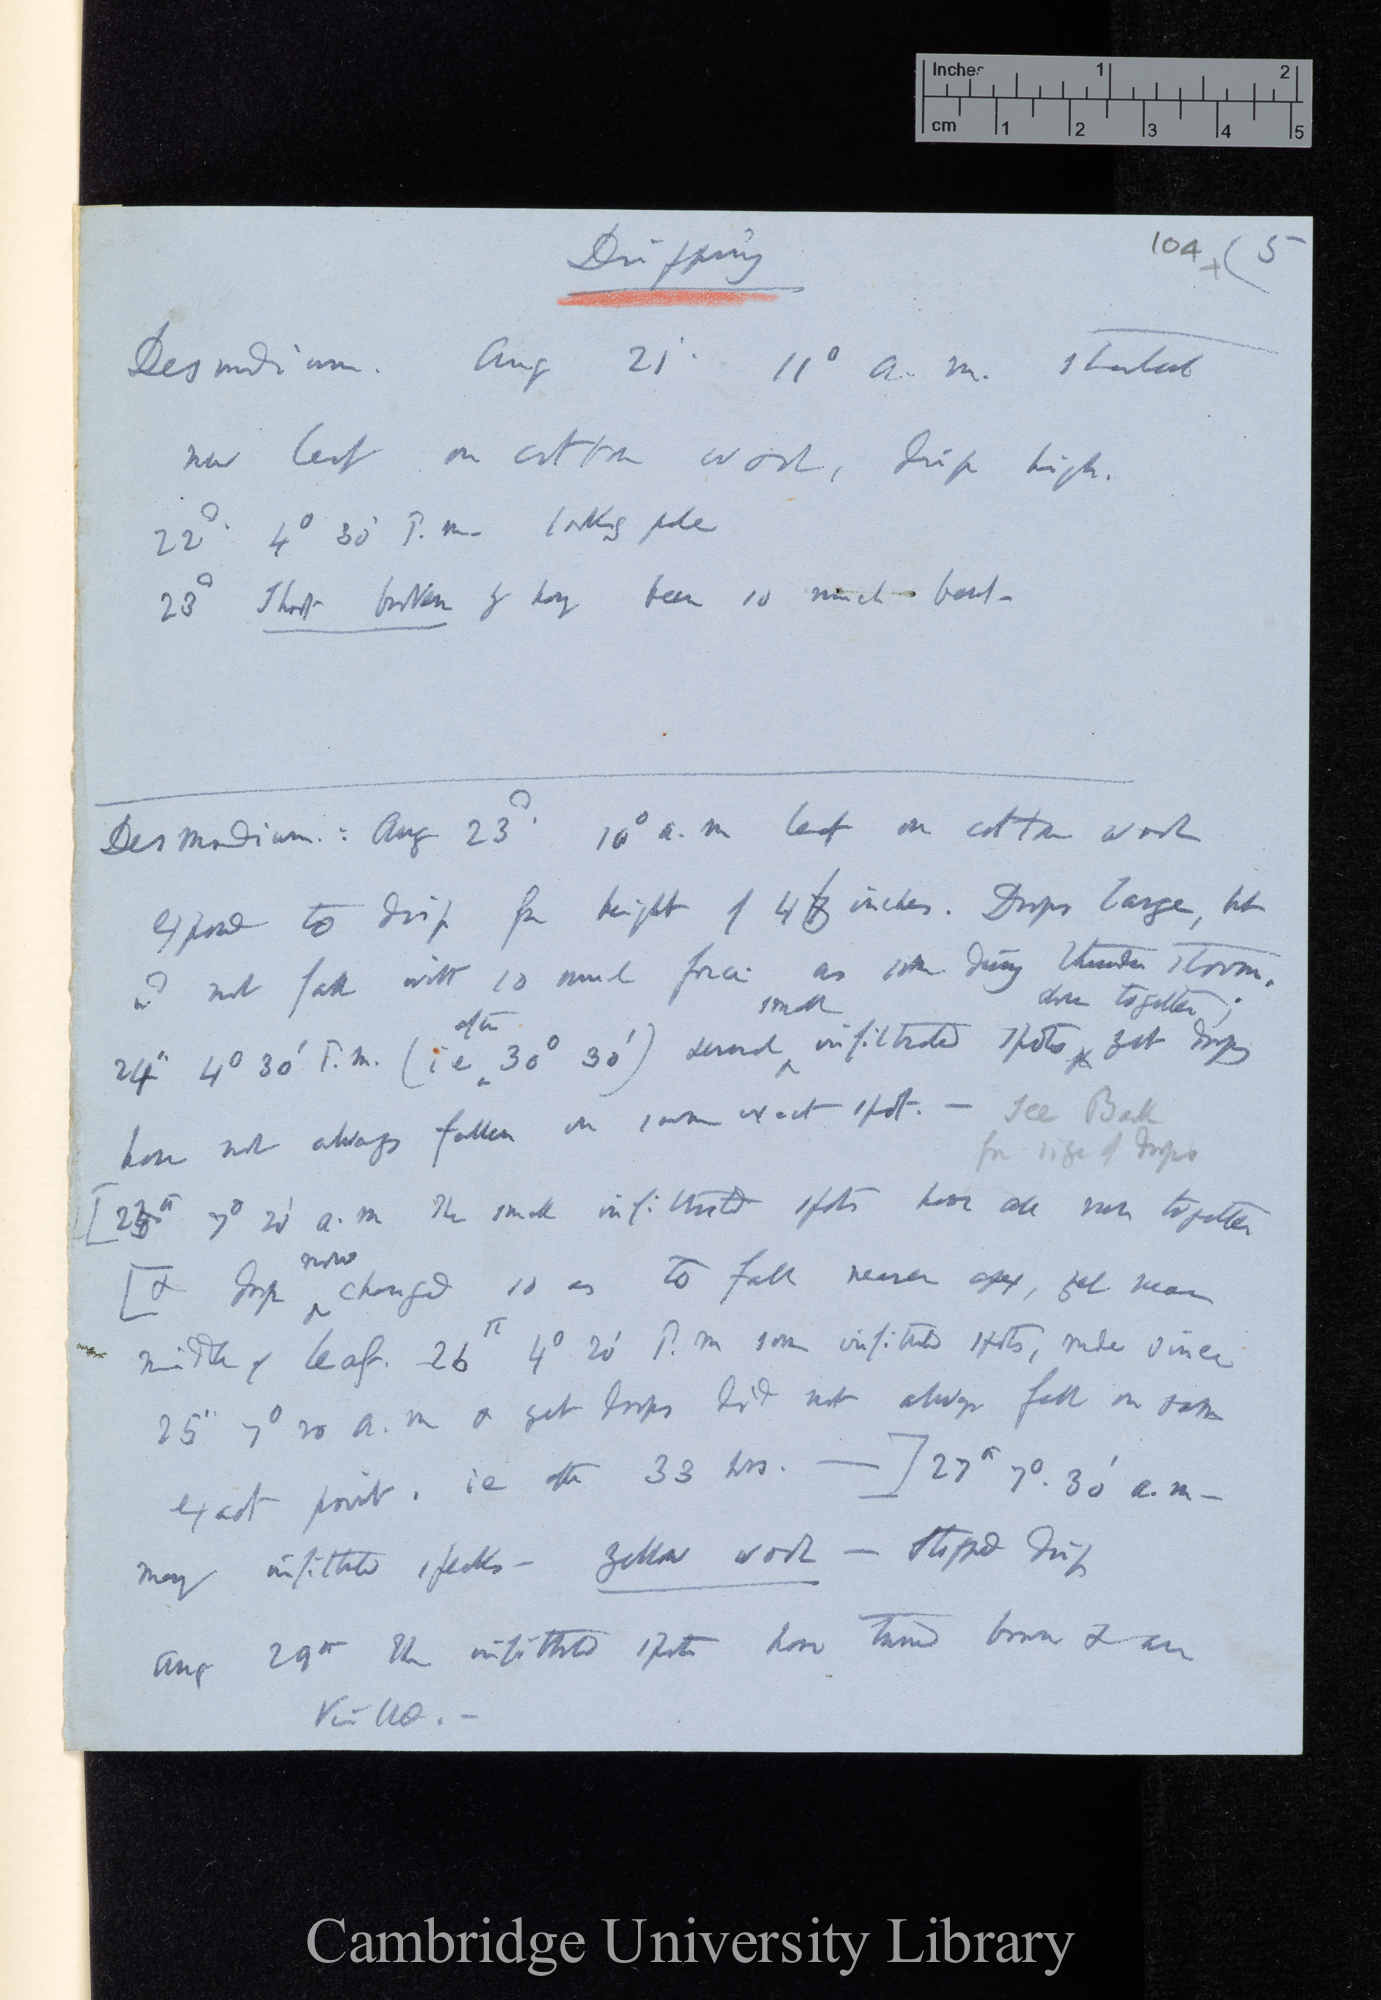 Inches 1 2
cm 1 2 3 4 5
104 + (5
Dripping
Desmodium. Aug 21. 11° a.m. started
new leaf on cotton wool, drip high.
22d. 4° 30' P.m. looking pale
23d broken by having been so much bent -
Desmodium.: Aug 23d. 10° a.m leaf on cotton wool
exposed to drip from height of 4 inches. Drops large, but
did not fall with so much force as some during thunder storm.
small close together;
24th 4° 30' P.m. (ie after 30° 30') several infiltrated spots yet drops
have not always fallen on same exact spot. — See Back
for size of drops
[25th 7° 20' a.m the small infiltrated spots have all run together
[& drip now changed so as to fall nearer apex, yet near
middle of leaf. 26th 4° 20' P.m some infiltrated spots, made since
25th 7° 20 a.m & yet drops did not always fall on same
exact point, ie after 33 hrs. —] 27th 7°. 30' a.m —
many infiltrated specks — yellow wool — stopped drip
Aug 29th The infiltrated spots have turned brown & are
killed. —
Cambridge University Library